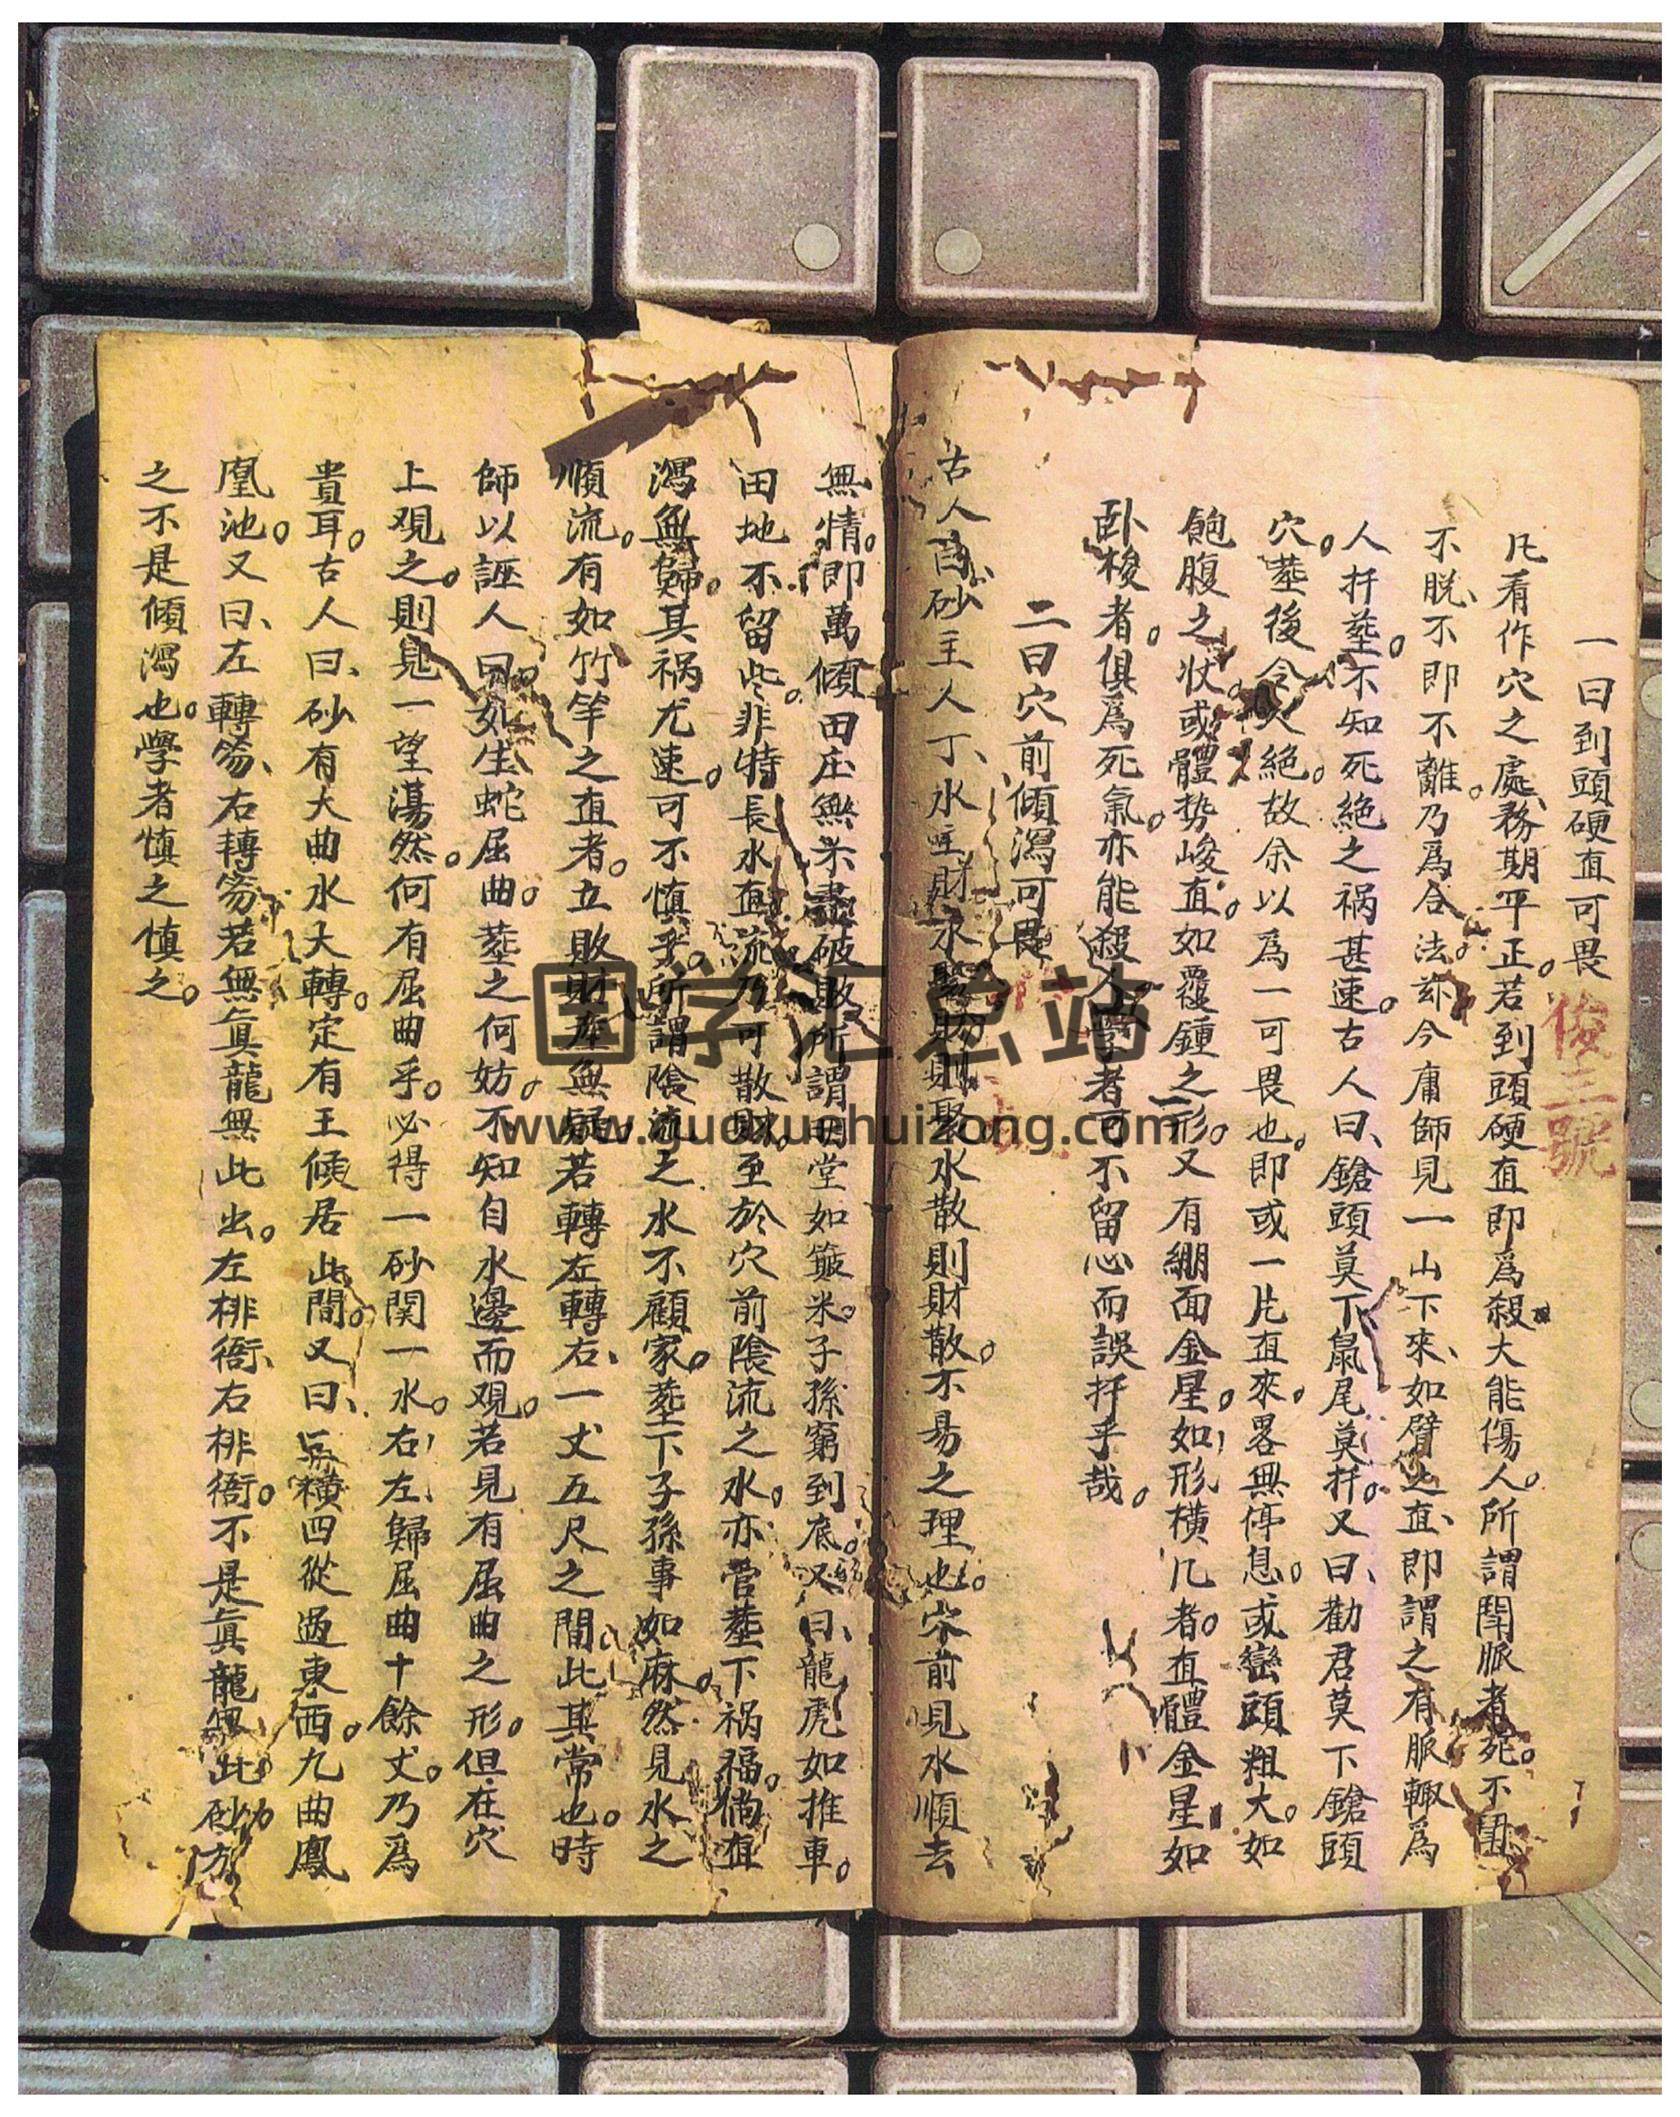 一曰到頭硬直可畏
俊三號
凡看作穴之處、務期平正。若到頭硬直即爲殺大能傷人。所謂鬥脈者死。不
不脫、不即不離。乃爲合法茲今庸師見一山下來、如臂之直、即謂之有脈輙爲
人扦塟。不知死絕之禍甚速。古人曰、鎗頭莫下鼠尾莫扦。又曰、勸君莫下鎗頭
穴。塟後令人絕。故余以爲一可畏也。即或一片直來。畧無停息。或巒頭粗大。如
飽腹之狀。或體势峻直。如覆鍾之形。又有綳面金星。如形橫几者。直體金星如
卧梭者。俱爲死氣。亦能殺人。學者可不留心而誤扦乎哉。
二曰穴前傾瀉可畏
古人言砂主人丁、水主財。水聚則財聚水散則財散。不易之理也。穴前見水順去
無情。即萬傾田庄無米盡破敗所謂明堂如簸米。子孫窮到底。又曰、龍虎如推車。
田地不留些。非特長水直流乃可散財。至於穴前隂流之水。亦管塟下禍福。倘直
瀉無歸。其祸尤速。可不慎乎。所謂隂流之水不顧家。塟下子孫事如麻。然見水之
順流。有如竹竿之直者。立敗財產無疑。若轉左轉右、一丈五尺之間。此其常也。時
師以誣人曰。如生蛇屈曲。塟之何妨。不知自水邊而观。若見有屈曲之形。但在穴
上观之。則見一望蕩然。何有屈曲乎。必得一砂関一水。右、左、歸屈曲十餘丈。乃爲
貴耳。古人曰、砂有大曲水大轉。定有王候居此間。又曰、橫四從過東西。九曲鳳
凰池。又曰、左轉笏、右轉笏若無眞龍無此出。左排衙、右排衙。不是眞龍無此砂。方
之不是傾瀉也。學者慎之慎之。
国学汇总站
www.guoxuehuizong.com